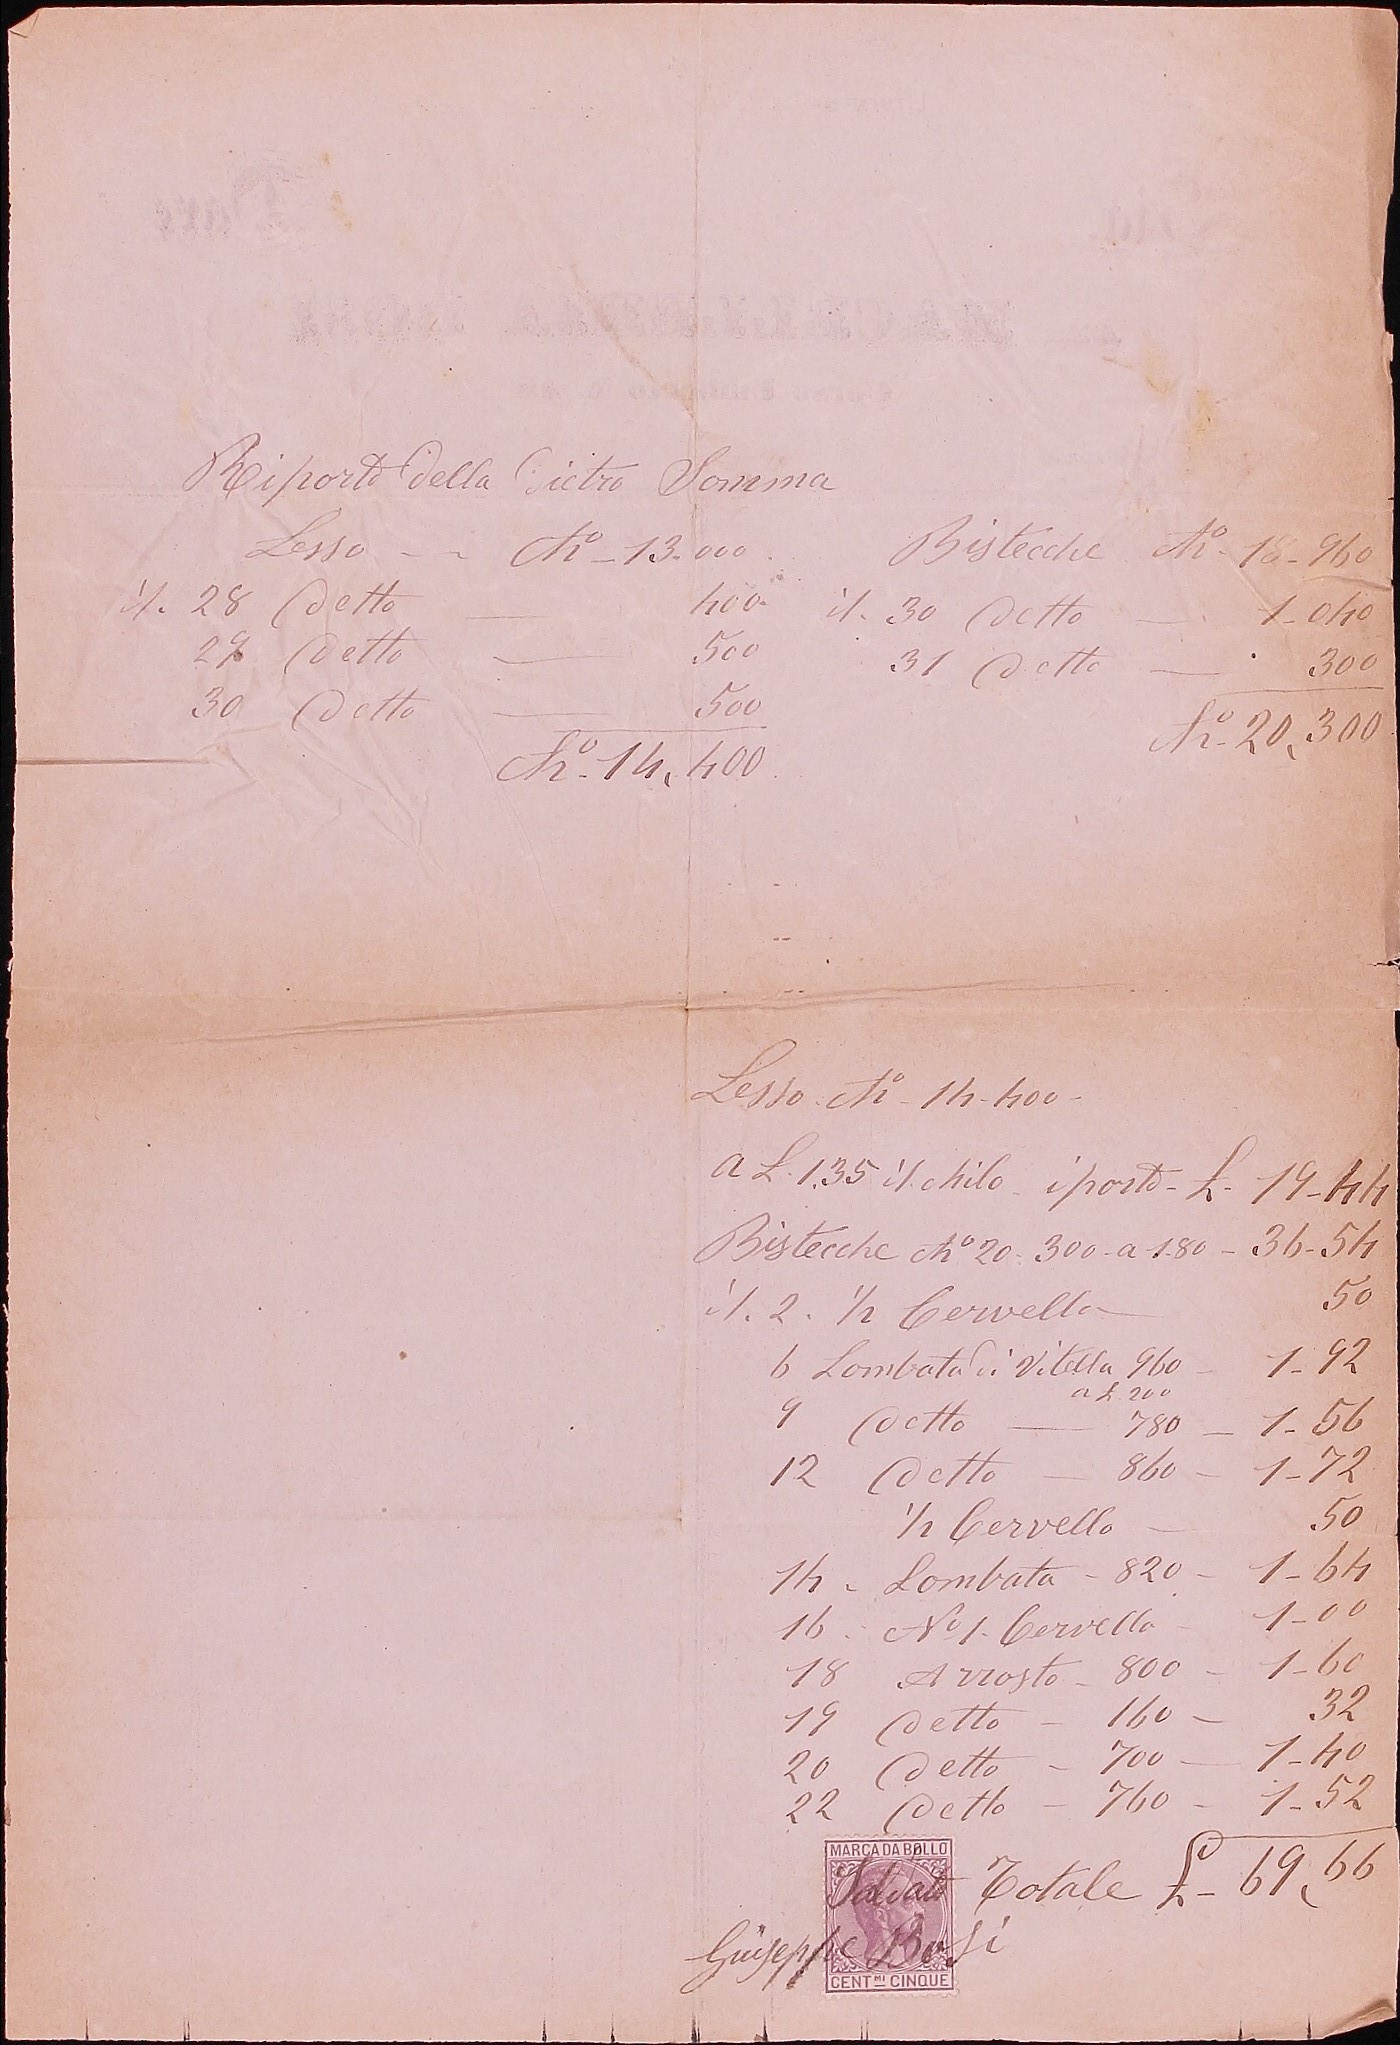 Riporto della dietro Somma
Lesso - - No - 13-000
il. 28 detto — 400
29 detto — 500
30 detto — 500
No - 14, 400
Bistecche No - 18-960
il. 30 detto — 1-040
31 detto — 300
No - 20, 300
Lesso No - 14-400 -
a L. 1,35 il chilo iporto - £ - 19-44
Bistecche No 20-300-a 1-80 - 36-54
il. 2. 1/2 Cervello — 50
6 Lombata di Vitella 960 - 1-92
a £ 200
9 detto — 780 - 1-56
12 detto — 860 - 1-72
1/2 Cervello — 50
14 - Lombata - 820 - 1-64
16 No 1. Cervello - 1-00
18 Arrosto - 800 - 1-60
19 detto - 160 - 32
20 detto - 700 - 1-40
22 detto - 760 - 1-52
MARCA DA BOLLO
Saldato Totale £ - 69,66
Giuseppe Bosi
CENT.MI CINQUE